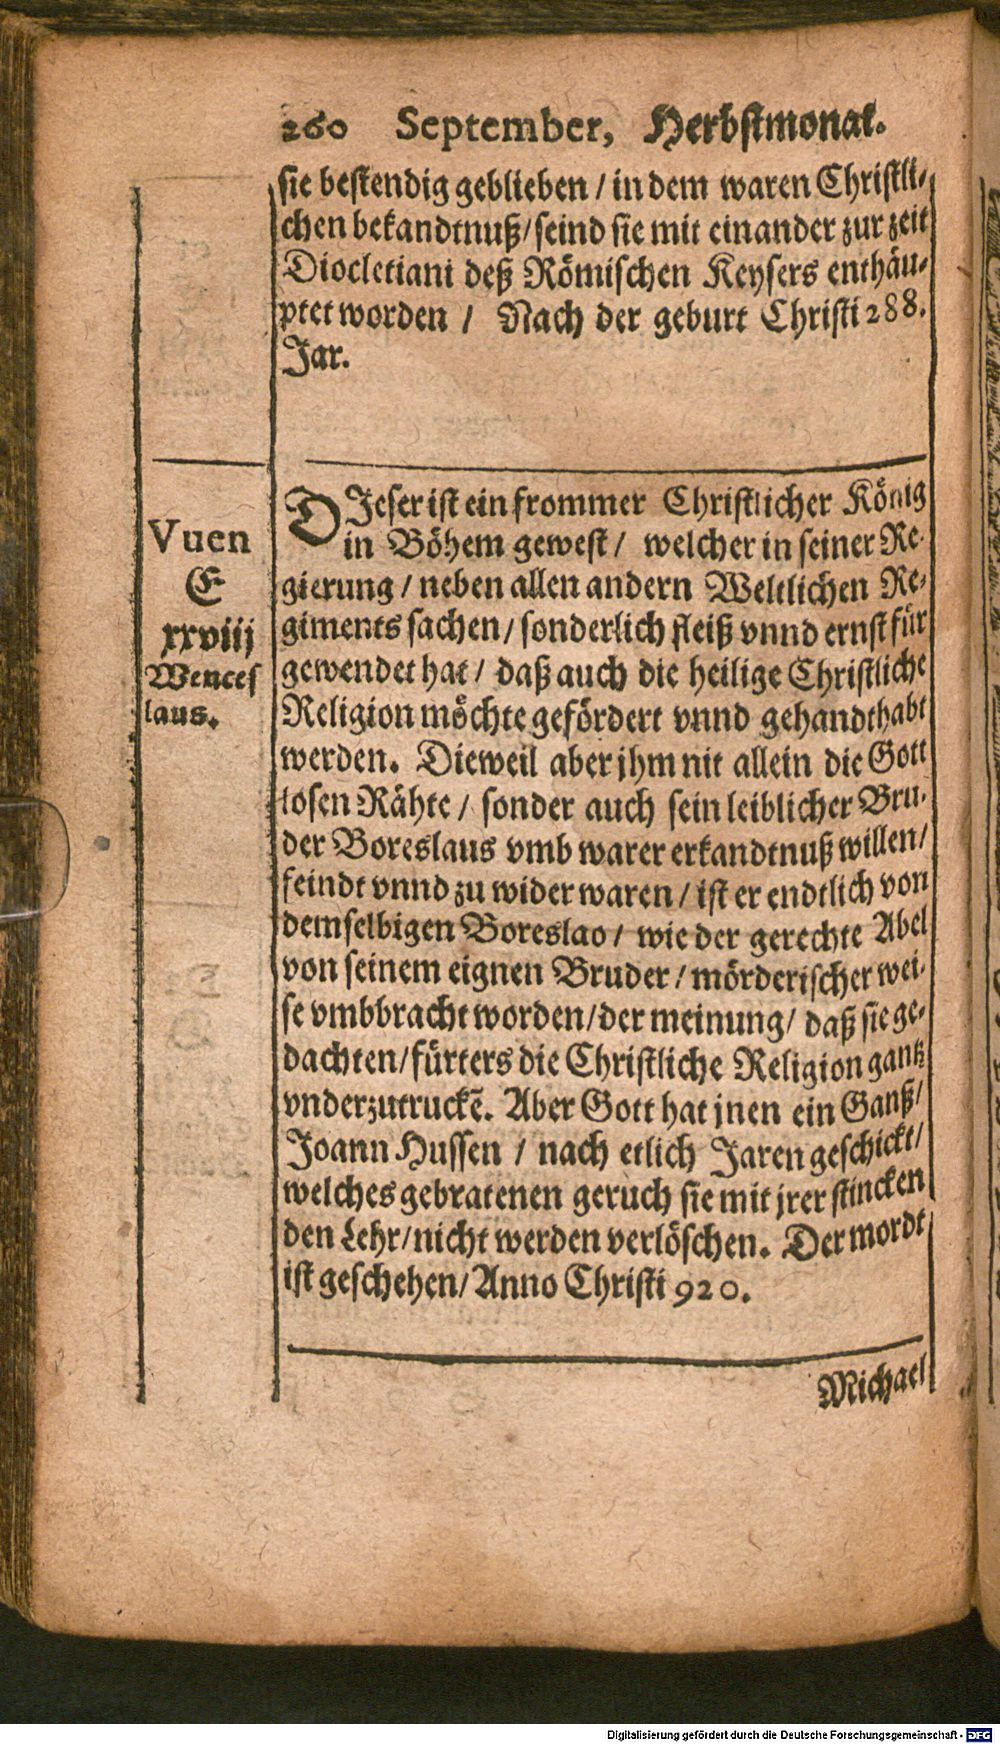 260 September, Herbstmonat.
sie bestendig geblieben / in dem waren Christli-
chen bekandtnuß / seind sie mit einander zur zeit
Diocletiani deß Römischen Keysers enthäu-
ptet worden / Nach der geburt Christi 288.
Jar.
Vuen
E
xxviij
Wences
laus.
DJeser ist ein frommer Christlicher König
in Böhem gewest / welcher in seiner Re-
gierung / neben allen andern Weltlichen Re-
giments sachen / sonderlich fleiß vnnd ernst für
gewendet hat / daß auch die heilige Christliche
Religion möchte gefördert vnnd gehandthabt
werden. Dieweil aber jhm nit allein die Gott
losen Rähte / sonder auch sein leiblicher Bru-
der Boreslaus vmb warer erkandtnuß willen /
feindt vnnd zu wider waren / ist er endtlich von
demselbigen Boreslao / wie der gerechte Abel
von seinem eignen Bruder / mörderischer wei-
se vmbbracht worden / der meinung / daß sie ge-
dachten / fürters die Christliche Religion gantz
vnderzutruckẽ. Aber Gott hat jnen ein Ganß /
Joann Hussen / nach etlich Jaren geschickt /
welches gebratenen geruch sie mit jrer stincken
den Lehr / nicht werden verlöschen. Der mordt
ist geschehen / Anno Christi 920.
Michael
Digitalisierung gefördert durch die Deutsche Forschungsgemeinschaft - DFG